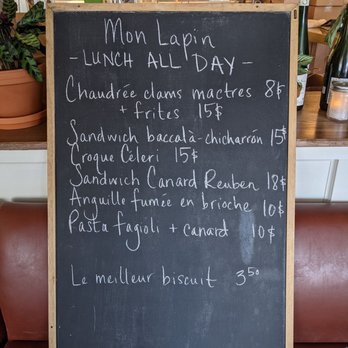 Mon Lapin
- LUNCH ALL DAY -
Chaudrée clams mactres 8$
+ frites 15$
Sandwich baccalà-chicharrón 15$
Croque Céleri 15$
Sandwich Canard Reuben 18$
Anguille fumée en brioche 10$
Pasta fagioli + canard 10$
Le meilleur biscuit 3.50